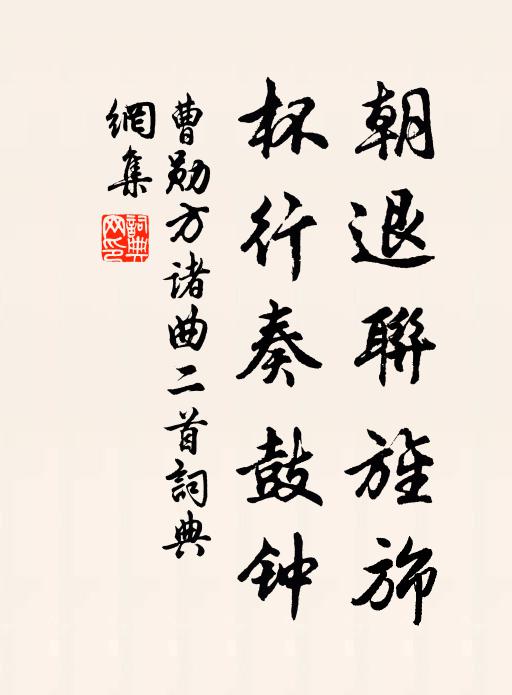 朝退聯旌旆
杯行奏鼓钟
曹勋方诸曲二首詞典
網集
詞典网印